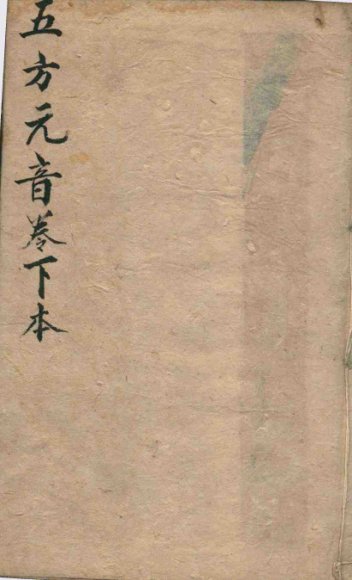 五方元音卷下本